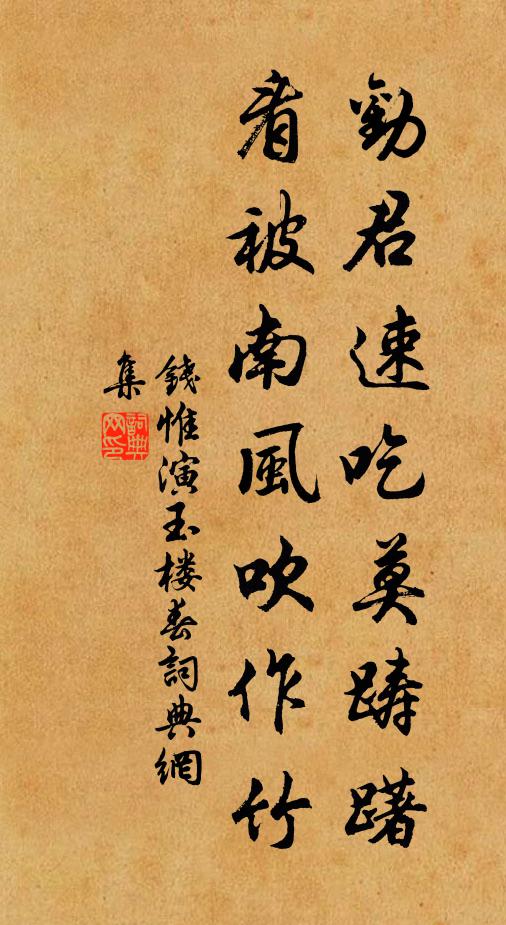 勸君速吃莫踌躇
看被南風吹作竹
錢惟演玉楼春詞典網
集
詞典
网印